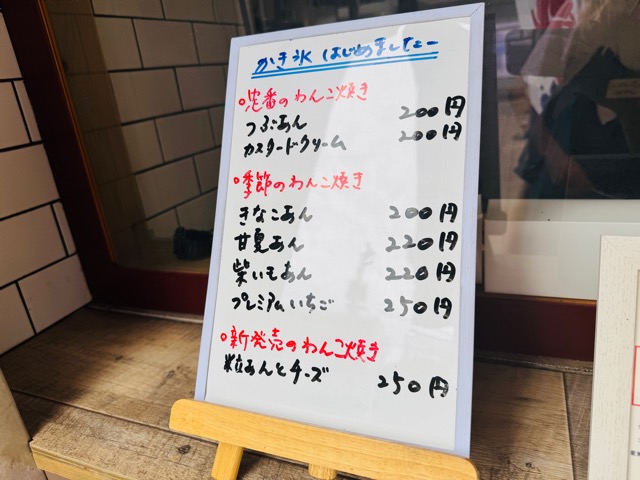 かき氷 はじめましたー
○定番のわんこ焼き
つぶあん 200円
カスタードクリーム 200円
○季節のわんこ焼き
きなこあん 200円
甘夏あん 220円
紫いもあん 220円
プレミアムいちご 250円
○新発売のわんこ焼き
粒あんとチーズ 250円